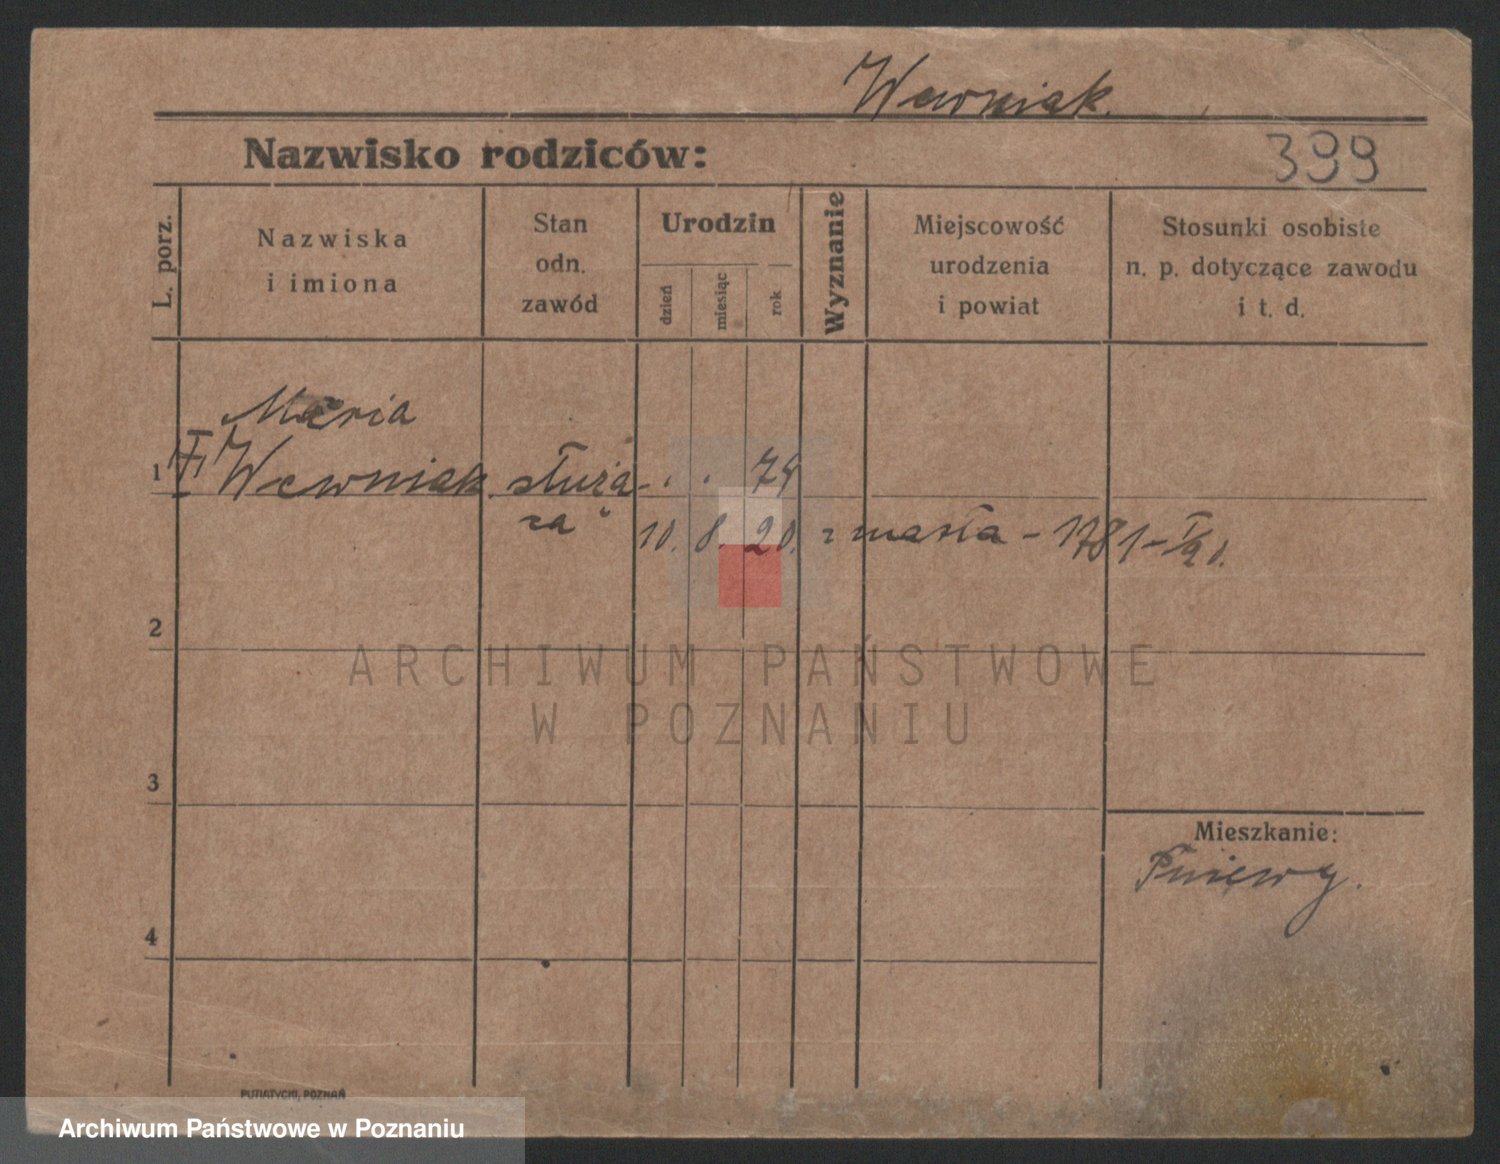 Wewniak.
Nazwisko rodziców:
399
L. porz.
Nazwiska
i imiona
Stan
odn.
zawód
Urodzin
dzień
miesiąc
rok
Wyznanie
Miejscowość
urodzenia
i powiat
Stosunki osobiste
n. p. dotyczące zawodu
i t. d.
Maria
1 Wewniak. służą- . . 74
ca" 10. 8. 20. zmarła - 1781-
2
ARCHIWUM PAŃSTWOWE
W POZNANIU
3
Mieszkanie:
Pniewy.
4
PUTIATYCKI, POZNAŃ
Archiwum Państwowe w Poznaniu